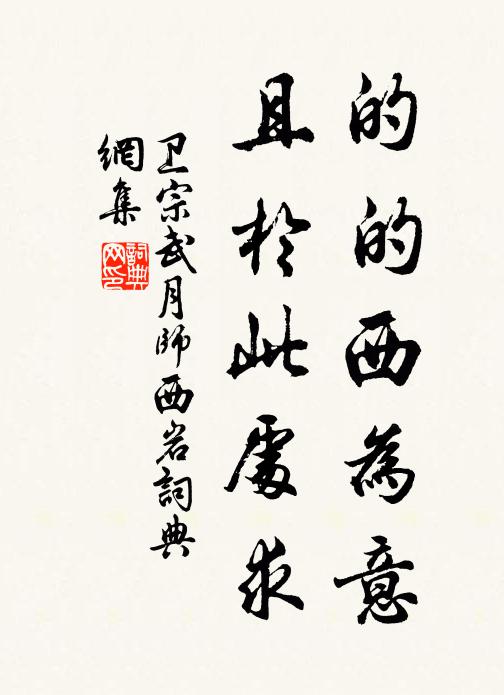 的的西為意
且於此處求
卫宗武月師西岩詞典
網集
詞典
网印